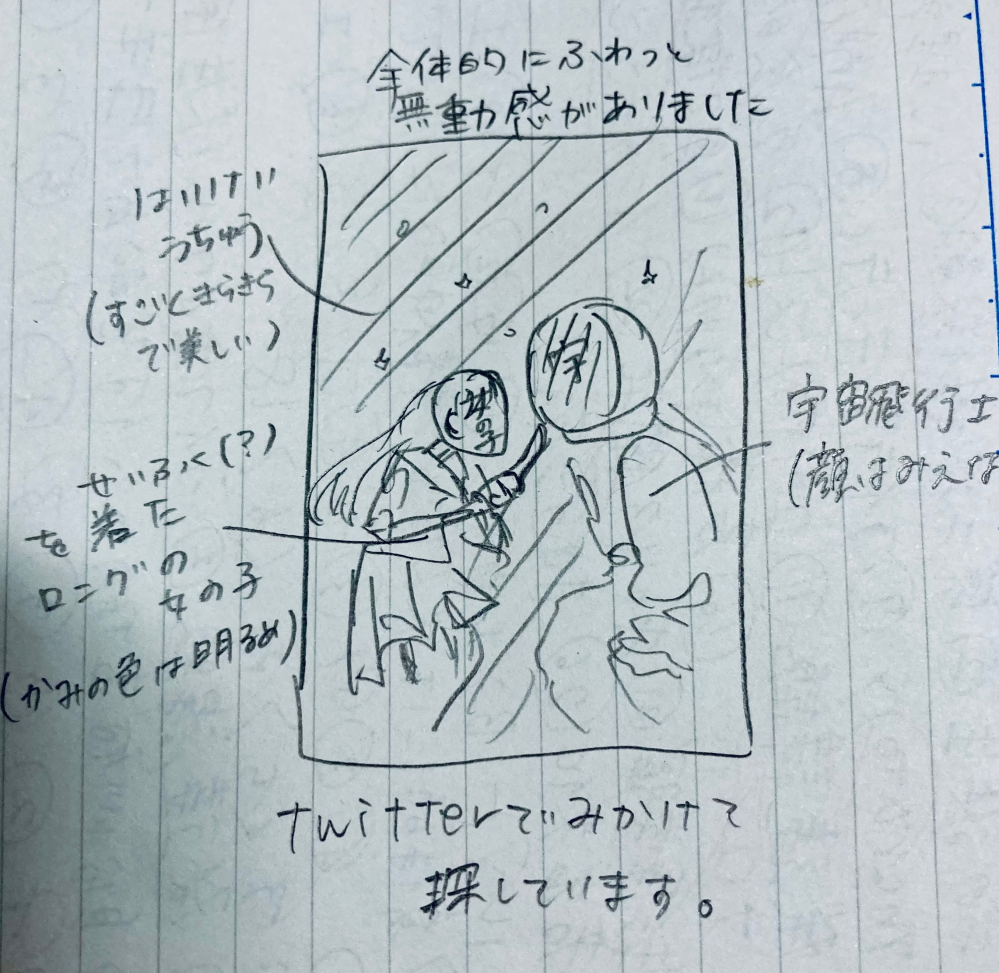 全体的にふわっと
無動感がありました
はいけい
うちゅう
(すごくきらきら
で美しい)
宇
女の子
宇宙飛行士
(顔はみえな
せいふく(?)
を着た
ロングの
女の子
(かみの色は明るめ)
twitterでみかけて
探しています。